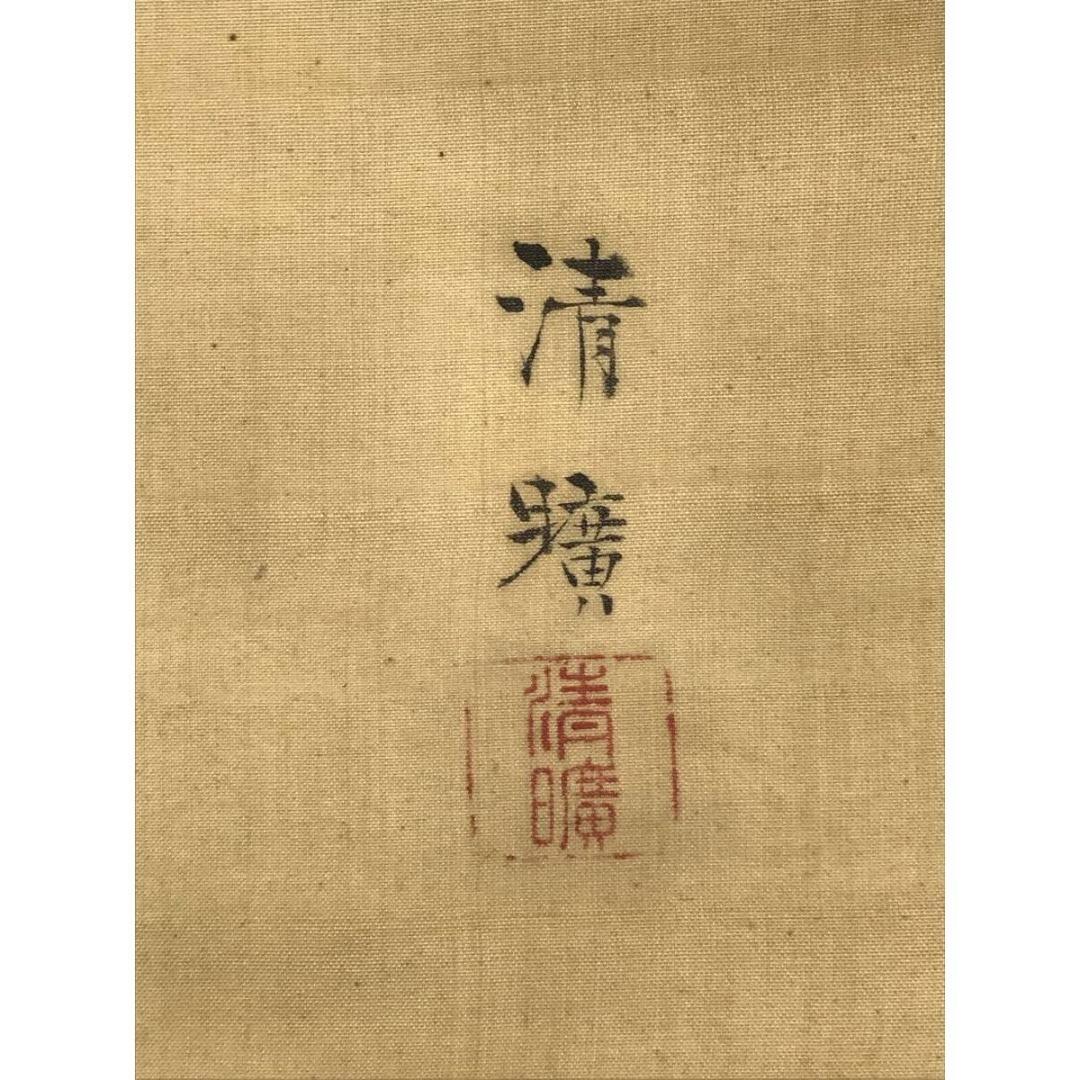 清曠
清曠